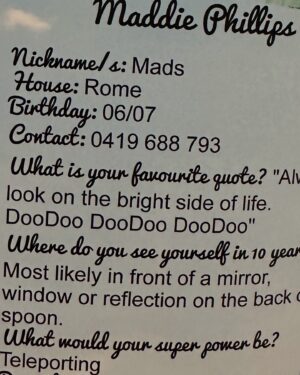 Maddie Phillips
Nickname/s: Mads
House: Rome
Birthday: 06/07
Contact: 0419 688 793
What is your favourite quote? "Alw
look on the bright side of life.
DooDoo DooDoo DooDoo"
Where do you see yourself in 10 year
Most likely in front of a mirror,
window or reflection on the back o
spoon.
What would your super power be?
Teleporting